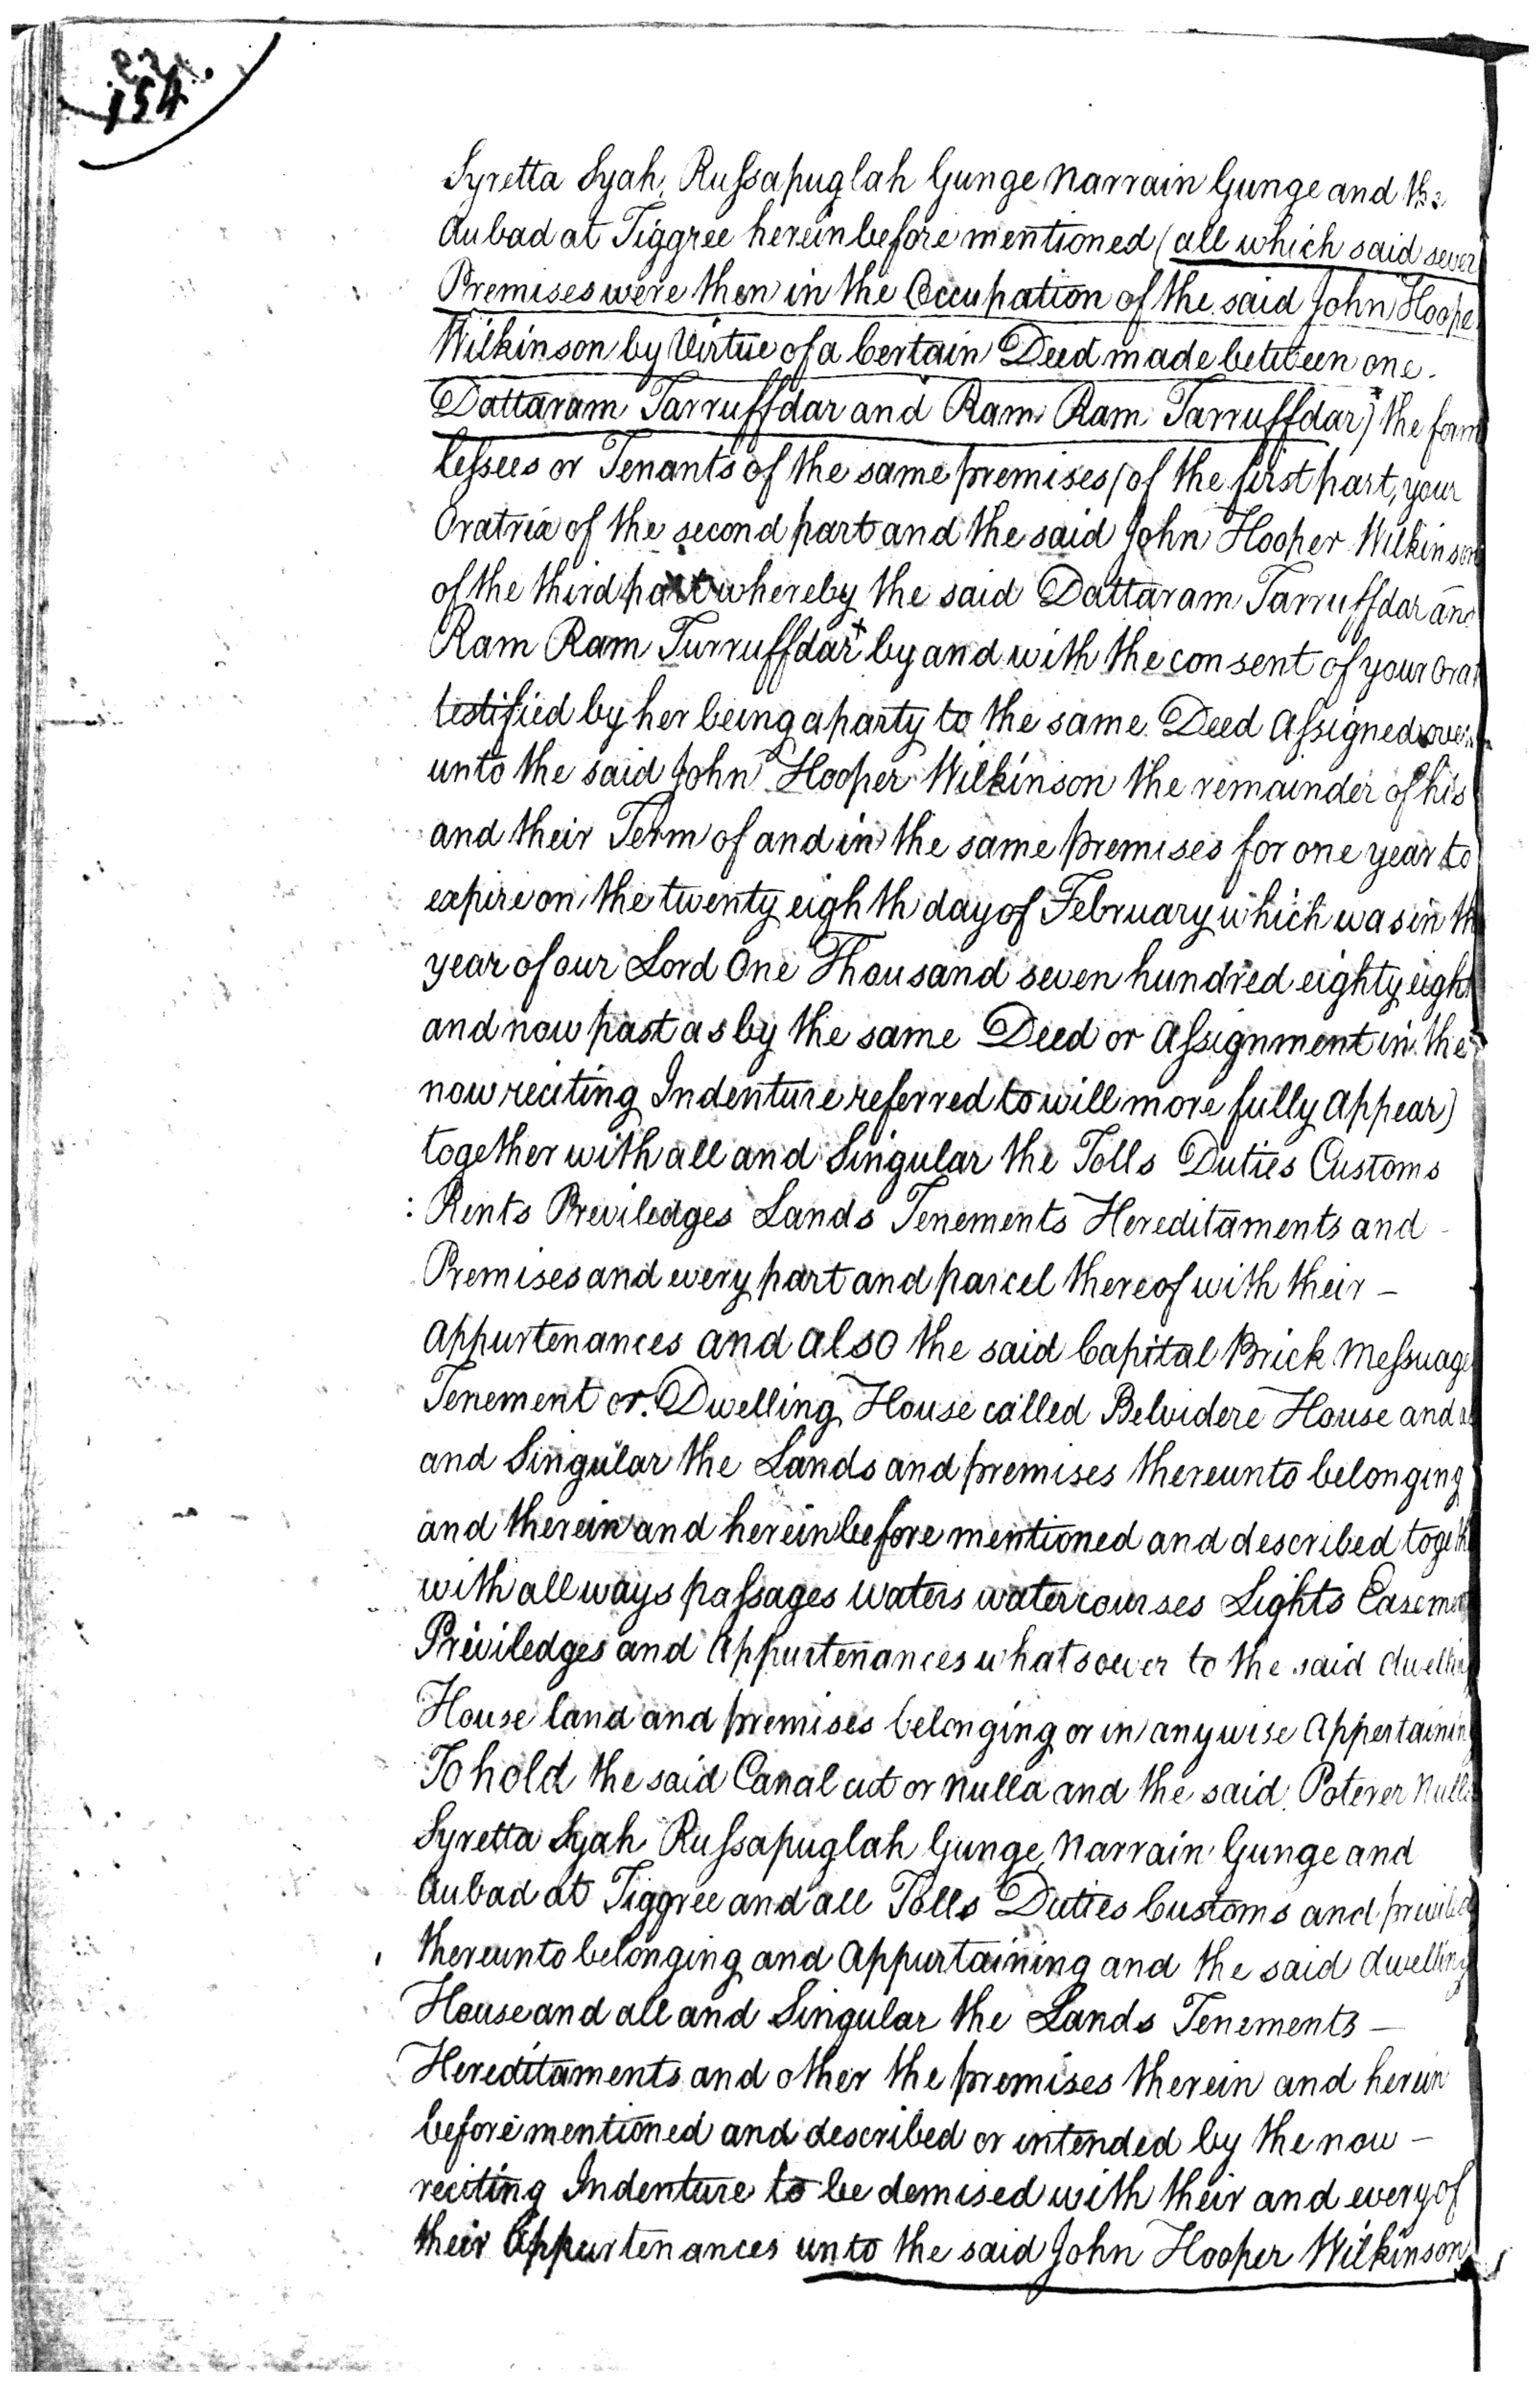 154.
Syretta Syah, Russapuglah Gunge Narrain Gunge and the
Aubad at Tiggree hereinbefore mentioned (all which said sever
Premises were then in the Occupation of the said John Hoope
Wilkinson by Virtue of a Certain Deed made between one
Dattaram Tarruffdar and Ram Ram Tarruffdar) the form
lessees or Tenants of the same premises (of the first part, your
Oratrix of the second part and the said John Hooper Wilkinson
of the third part whereby the said Dattaram Tarruffdar and
Ram Ram Turruffdar by and with the consent of your Orat
testified by her being a party to the same Deed Assigned over
unto the said John Hooper Wilkinson the remainder of his
and their Term of and in the same premises for one year to
expire on the twenty eighth day of February which was in th
year of our Lord One Thousand seven hundred eighty eight
and now past as by the same Deed or Assignment in the
now reciting Indenture referred to will more fully Appear)
together with all and Singular the Tolls Duties Customs
: Rents Previledges Lands Tenements Hereditaments and -
Premises and every part and parcel thereof with their -
Appurtenances and also the said Capital Brick Messuage
Tenement or Dwelling House called Belvidere House and al
and Singular the Lands and premises thereunto belonging
and therein and hereinbefore mentioned and described togeth
with all ways passages Waters watercourses Lights Easemen
Priviledges and Appurtenances whatsoever to the said dwelling
House land and premises belonging or in anywise Appertaining
To hold the said Canal cut or Nulla and the said Poterer Nulla
Syretta Syah Russapuglah Gunge Narrain Gunge and
Aubad at Tiggree and all Tolls Duties Customs and priviled
thereunto belonging and Appurtaining and the said dwelling
House and all and Singular the Lands Tenements -
Hereditaments and other the premises therein and herein
before mentioned and described or intended by the now -
reciting Indenture to be demised with their and every of
their Appurtenances unto the said John Hooper Wilkinson